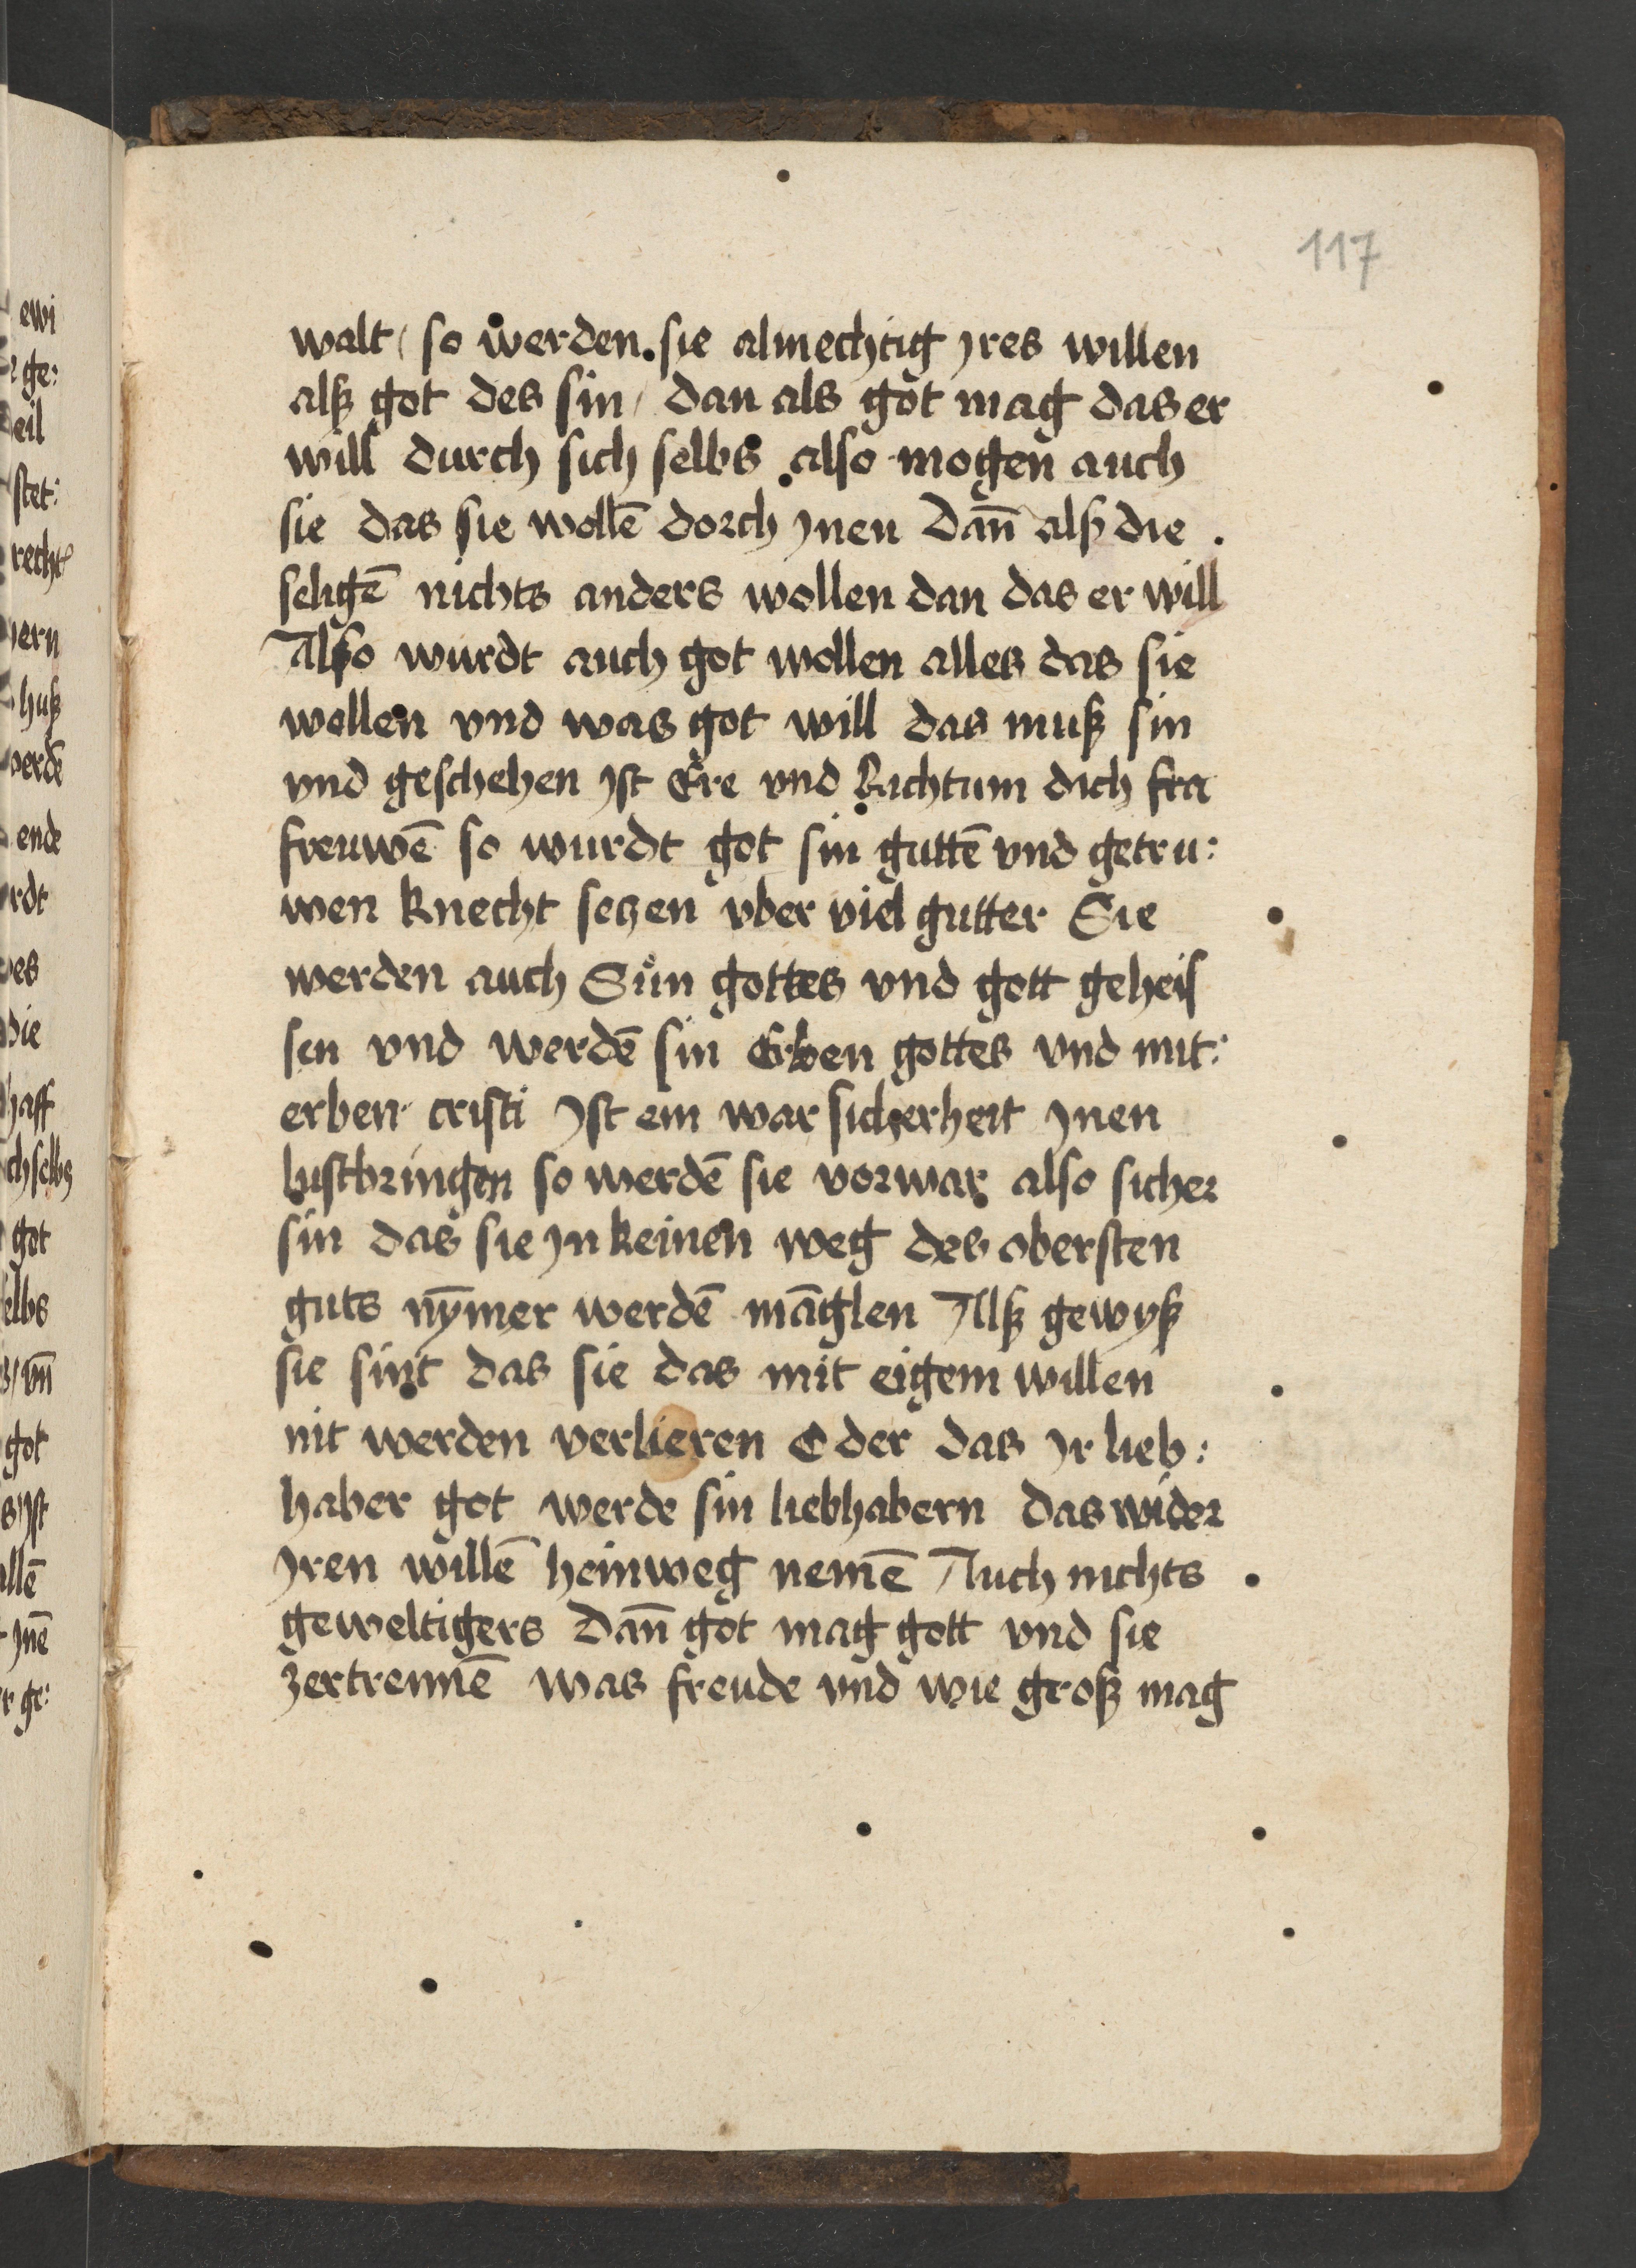 117
walt / so werden sie almechtig Jres willen
alß got des sin / dan als got mag das er
will durch sich selbs also mogen auch
sie das sie wollē dorch Jnen Dañ alß die
seligē nichts anders wollen dan das er will
Also wurdt auch got wollen alles das sie
wollen vnd was got will das muß sin
vnd geschehen Jst Ere vnd Richtum dich fra
freuwē so wurdt got sin guttē vnd getru:
wen knecht setzen vber viel gutter Sie
werden auch Sün gottes vnd gott geheis
sen vnd werdē sin Erben gottes vnd mit:
erben cristi Jst ein war sicherheit Jnen
lustbringen so werdē sie vorwar also sicher
sin das sie Jn keinen weg des obersten
guts nȳmer werdē māglen Alß gewyß
sie sint das sie das mit eigem willen
nit werden verlieren Oder das Jr lieb:
haber got werde sin liebhabern das wider
Jren willē heinweg nemē Auch nichts
geweltigers Dañ got mag gott vnd sie
zertrennē was freude vnd wie groß mag